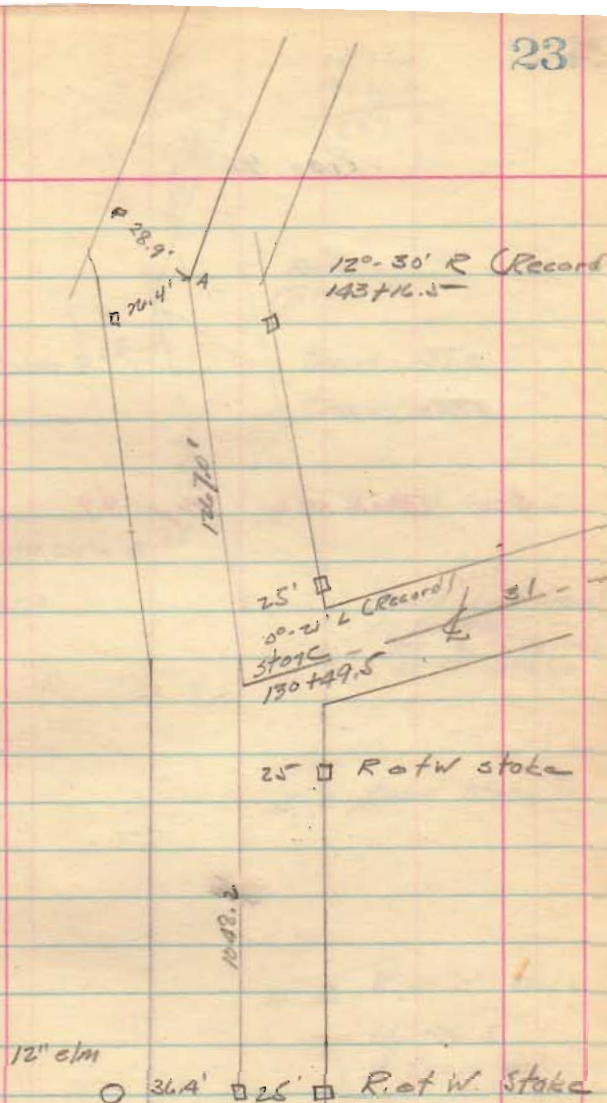 23
28.9'
A
12°-30' R (Record
143+16.5
26.4'
1267.0'
25'
0°-21' L (Record)
31
stone
130+49.5
25 R of W stake
1048.2
12" elm
36.4' 25' R. of W. Stake